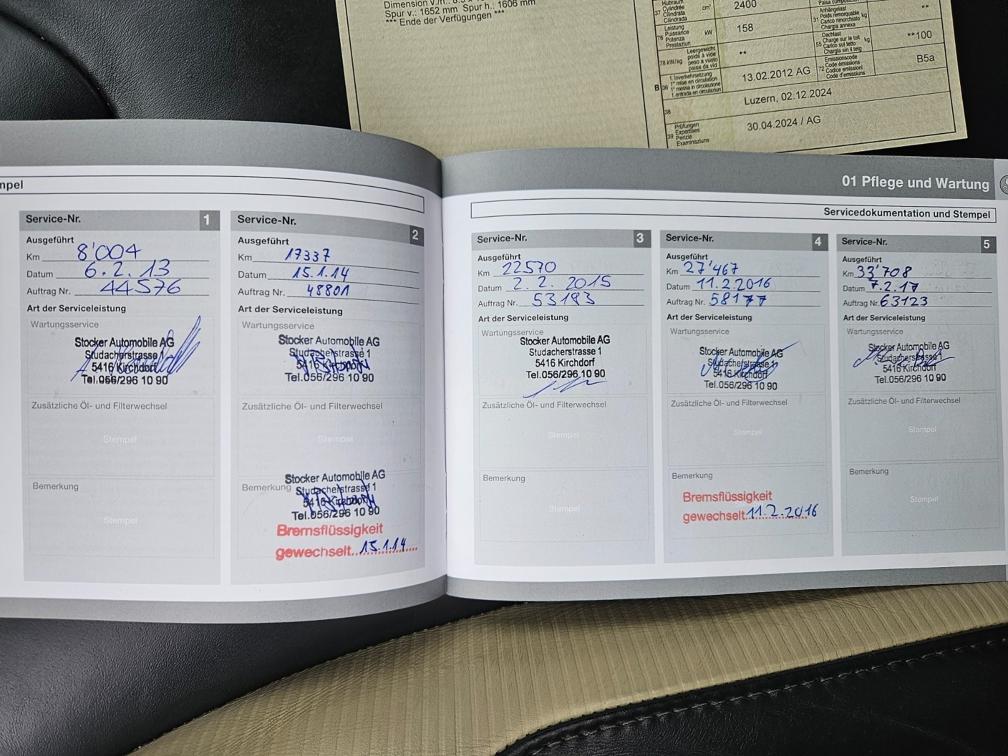 Spur v.: 1652 mm Spur h.: 1606 mm
*** Ende der Verfügungen ***
Hubraum
Cylindrée
Cilindrata
Cilindrada
cm³
2400
Leistung
Puissance
Potenza
Prestaziun
kW
158
**
78 kW/kg
Leergewicht
**
**100
B
36
1. Inverkehrsetzung
13.02.2012 AG
72
Emissionscode
Code émissions
Codice emissioni
Code d'emissiuns
B5a
38
Luzern, 02.12.2024
39
Prüfungen
Expertises
Perizie
Examinaziuns
30.04.2024 / AG
mpel
01 Pflege und Wartung
Servicedokumentation und Stempel
Service-Nr. 1
Ausgeführt
Km 8'004
Datum 6.2.13
Auftrag Nr. 44576
Art der Serviceleistung
Wartungsservice
Stocker Automobile AG
Studacherstrasse 1
5416 Kirchdorf
Tel.056/296 10 90
Zusätzliche Öl- und Filterwechsel
Stempel
Bemerkung
Stempel
Service-Nr. 2
Ausgeführt
Km 17337
Datum 15.1.14
Auftrag Nr. 48801
Art der Serviceleistung
Wartungsservice
Stocker Automobile AG
Studacherstrasse 1
5416 Kirchdorf
Tel.056/296 10 90
Zusätzliche Öl- und Filterwechsel
Stempel
Bemerkung
Stocker Automobile AG
Studacherstrasse 1
5416 Kirchdorf
Tel.056/296 10 90
Bremsflüssigkeit
gewechselt..15.1.14
Service-Nr. 3
Ausgeführt
Km 22570
Datum 2.2.2015
Auftrag Nr. 53193
Art der Serviceleistung
Wartungsservice
Stocker Automobile AG
Studacherstrasse 1
5416 Kirchdorf
Tel.056/296 10 90
Zusätzliche Öl- und Filterwechsel
Stempel
Bemerkung
Stempel
Service-Nr. 4
Ausgeführt
Km 27'467
Datum 11.2.2016
Auftrag Nr. 58177
Art der Serviceleistung
Wartungsservice
Stocker Automobile AG
Studacherstrasse 1
5416 Kirchdorf
Tel.056/296 10 90
Zusätzliche Öl- und Filterwechsel
Stempel
Bemerkung
Bremsflüssigkeit
gewechselt:11.2.2016
Service-Nr. 5
Ausgeführt
Km 33'708
Datum 7.2.17
Auftrag Nr. 63123
Art der Serviceleistung
Wartungsservice
Stocker Automobile AG
Studacherstrasse 1
5416 Kirchdorf
Tel.056/296 10 90
Zusätzliche Öl- und Filterwechsel
Stempel
Bemerkung
Stempel